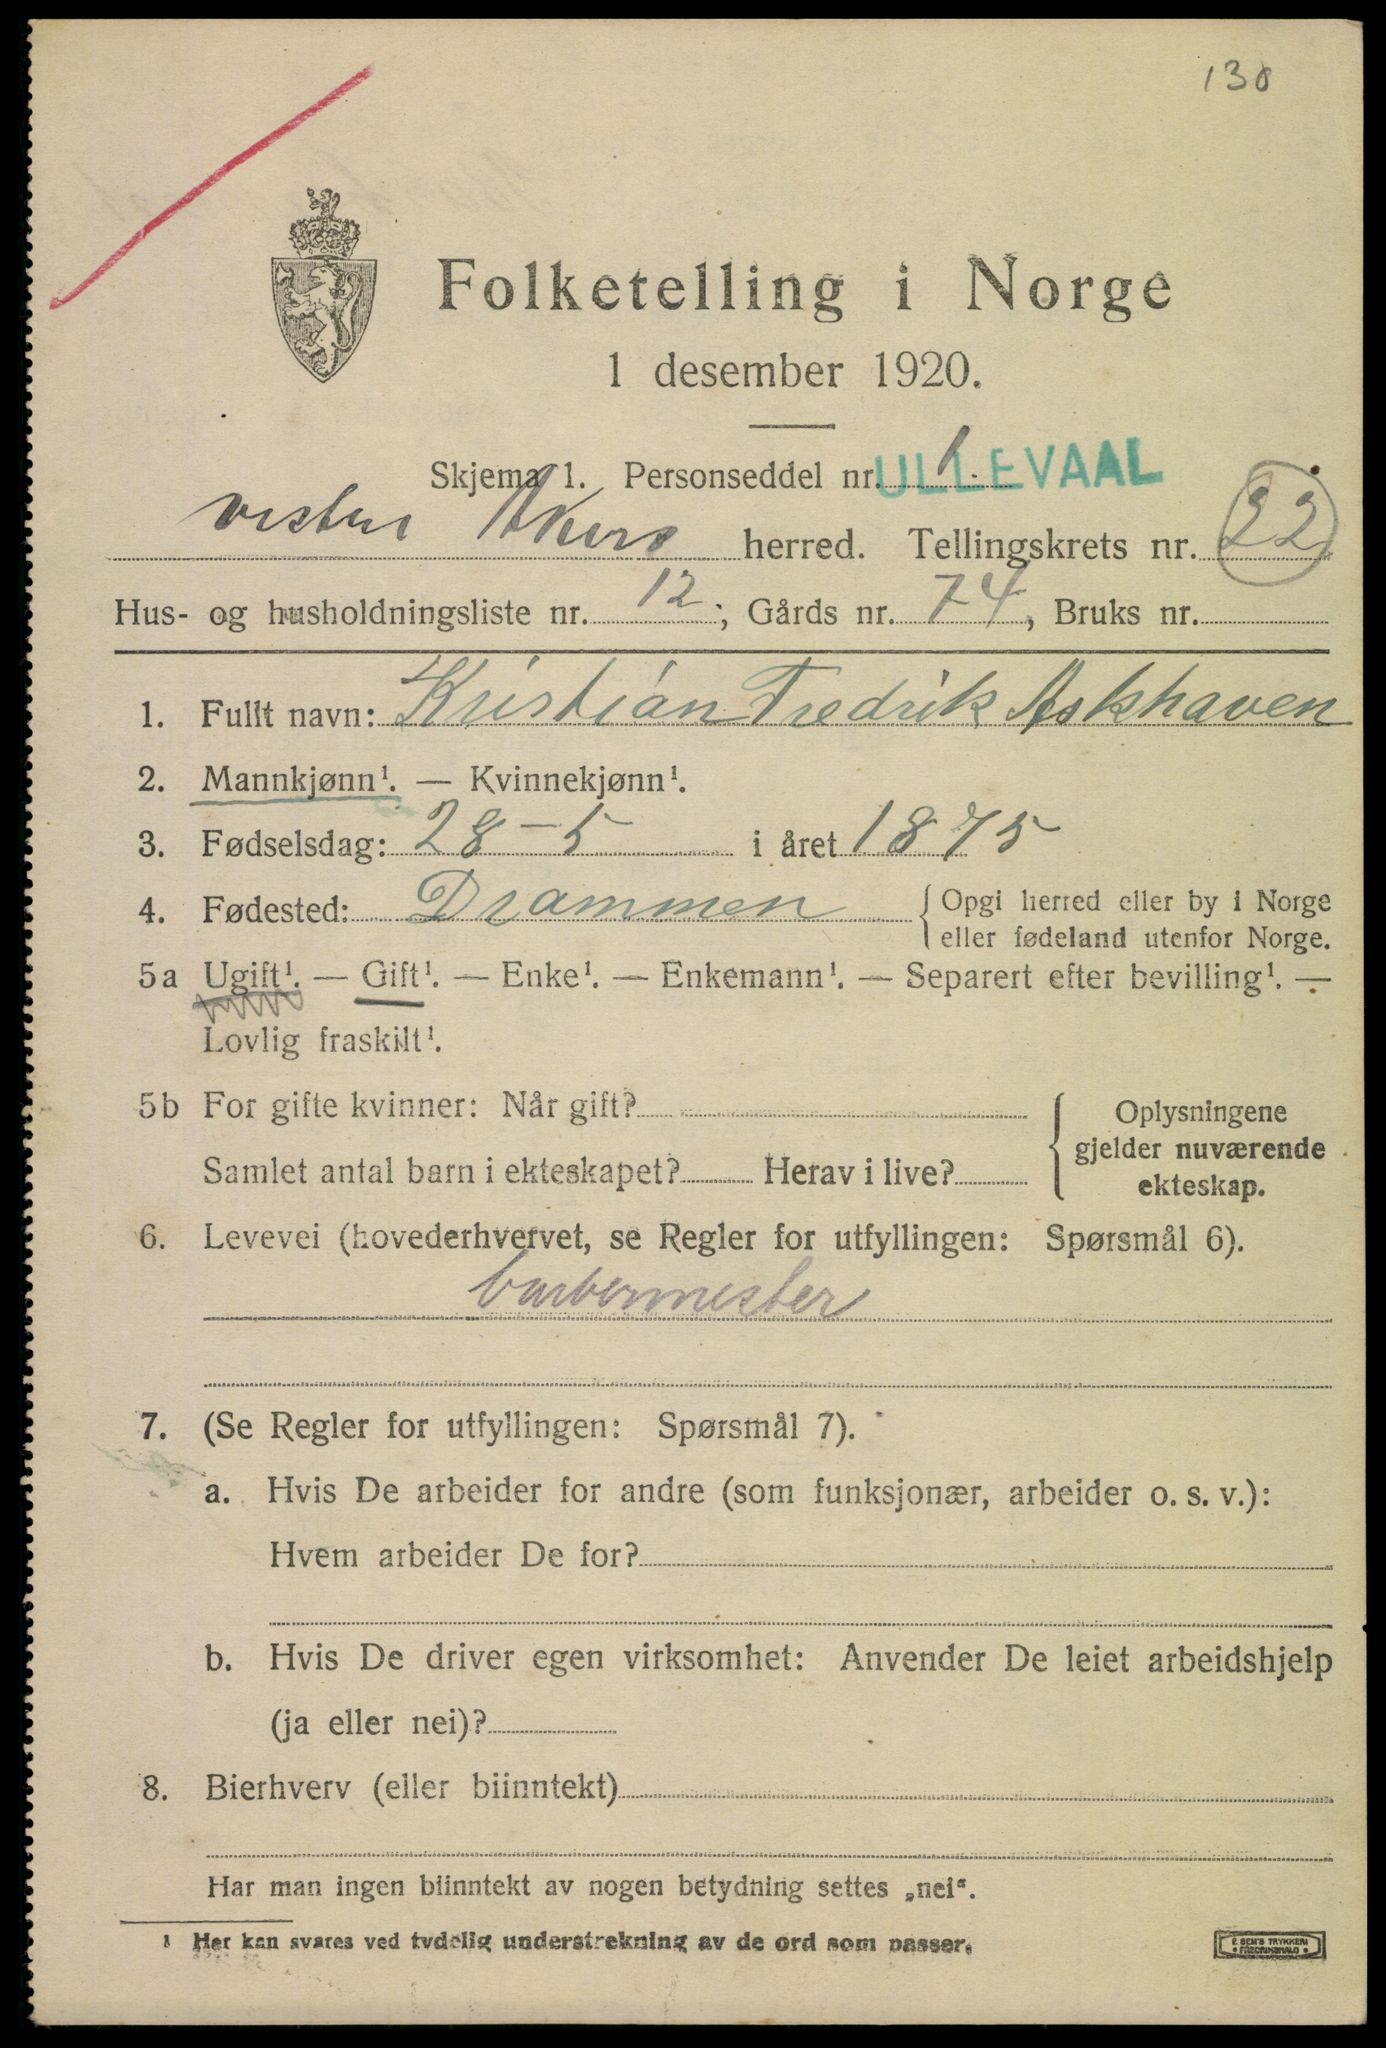 130
Folketelling i Norge
1 desember 1920.
Skjema 1. Personseddel nr. 1.
ULLEVAAL
vestre Akers herred. Tellingskrets nr. 32
Hus- og husholdningsliste nr. 12; Gårds nr. 74, Bruks nr.
1. Fullt navn: Kristian Fredrik Askhaven
2. Mannkjønn¹. — Kvinnekjønn¹.
3. Fødselsdag: 28-5 i året 1875
4. Fødested: Drammen { Opgi herred eller by i Norge
eller fødeland utenfor Norge.
5a Ugift¹. — Gift¹. — Enke¹. — Enkemann¹. — Separert efter bevilling¹. —
Lovlig fraskilt¹.
5b For gifte kvinner: Når gift?
Samlet antal barn i ekteskapet? Herav i live?
{ Oplysningene
gjelder nuværende
ekteskap.
6. Levevei (hovederhvervet, se Regler for utfyllingen: Spørsmål 6).
barbermester
7. (Se Regler for utfyllingen: Spørsmål 7).
a. Hvis De arbeider for andre (som funksjonær, arbeider o. s. v.):
Hvem arbeider De for?
b. Hvis De driver egen virksomhet: Anvender De leiet arbeidshjelp
(ja eller nei)?
8. Bierhverv (eller biinntekt)
Har man ingen biinntekt av nogen betydning settes „nei“.
¹ Her kan svares ved tydelig understrekning av de ord som passer.
E SEM'S TRYKKERI
FREDRIKSHALD